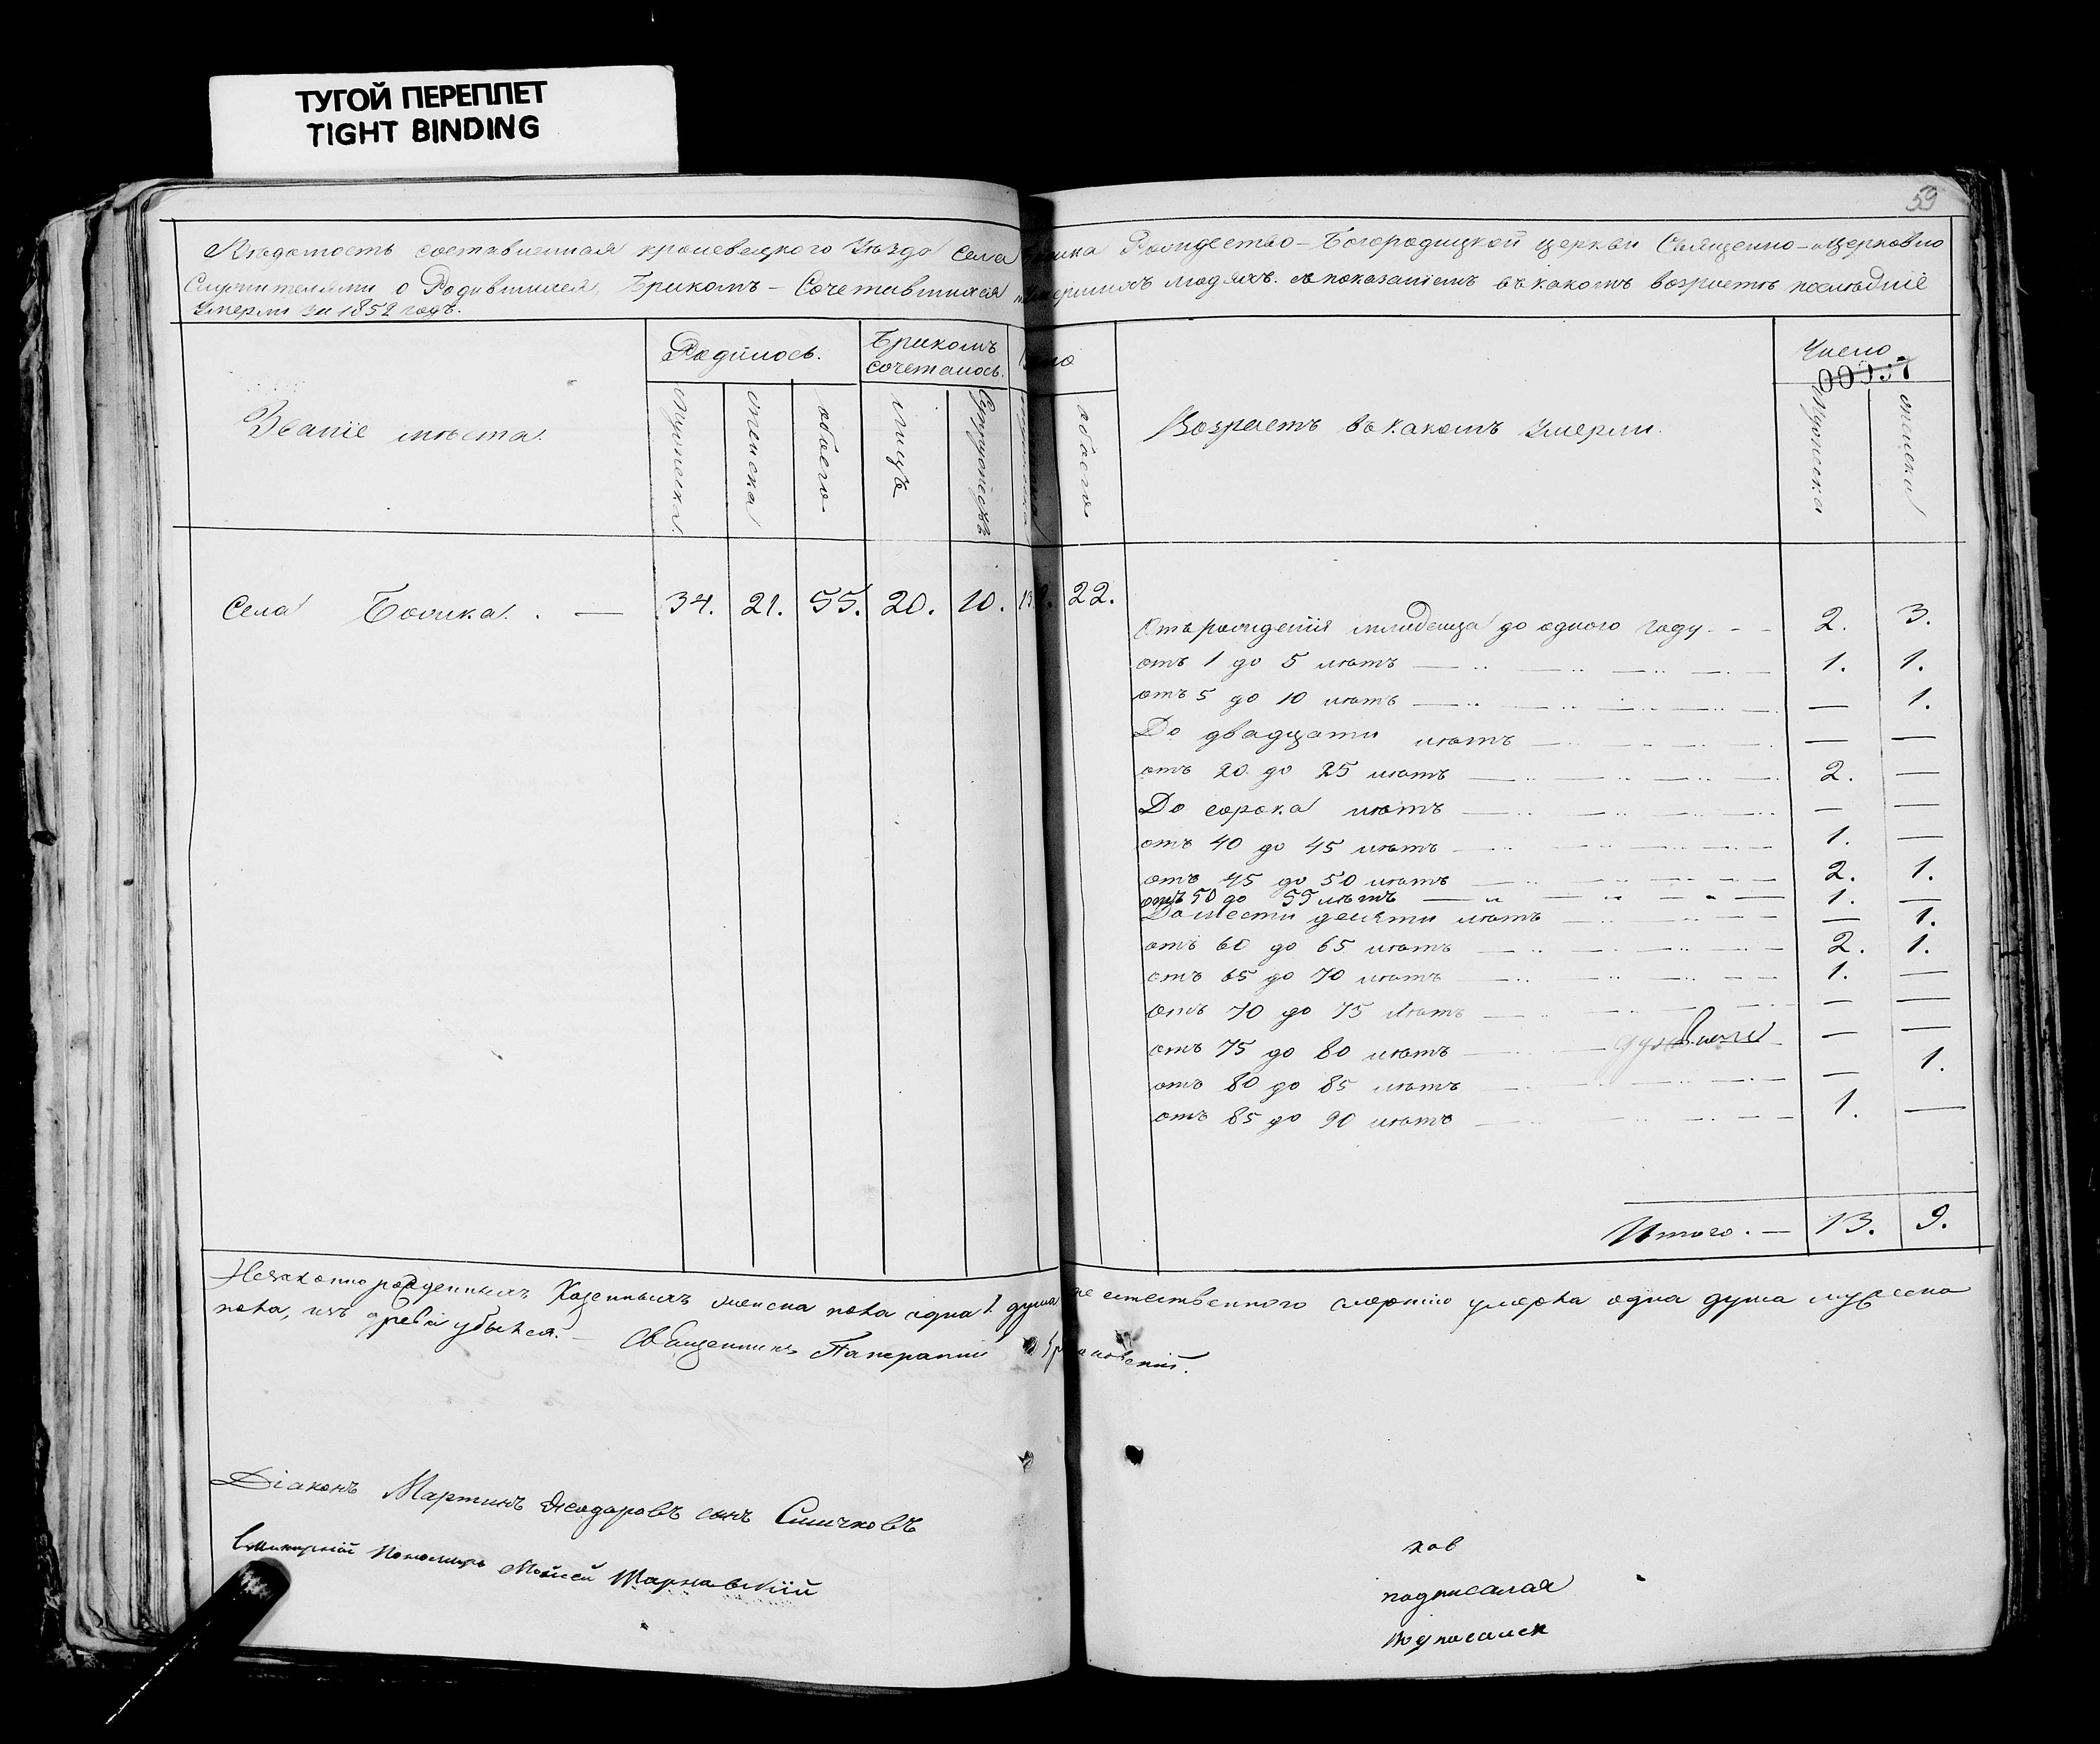 ТУГОЙ ПЕРЕПЛЕТ
TIGHT BINDING
59
Вѣдомость составленная кролевецкого уѣзда села Рождество-Богородицкой церкви Священно-церковно
Служителями о Родившихся, Бракомъ-Сочетавшихся умершихъ людяхъ. съ показаніемъ въ какомъ возрастѣ послѣдніе
умерли за 1852 годъ.
Званіе мѣста.
Родилось.
мужеска.
женска
обоего
Бракомъ сочеталось.
лицъ
Супружествъ
обоего
Возрастъ въ какомъ умерли.
Число
мужеска
женска
Села . — 34. 21. 55. 20. 10. 13. 9. 22.
Отъ рожденія младенца до одного году - - - 2. 3.
отъ 1 до 5 лѣтъ — 1. 1.
отъ 5 до 10 лѣтъ — — 1.
До двадцати лѣтъ — — —
отъ 20 до 25 лѣтъ — 2. —
До сорока лѣтъ — — —
отъ 40 до 45 лѣтъ — 1. —
отъ 45 до 50 лѣтъ — 2. 1.
отъ 50 до 55 лѣтъ — 1. —
До шести десяти лѣтъ — — 1.
отъ 60 до 65 лѣтъ — 2. 1.
отъ 65 до 70 лѣтъ — 1. —
отъ 70 до 75 лѣтъ — — —
отъ 75 до 80 лѣтъ — — —
отъ 80 до 85 лѣтъ — — 1.
отъ 85 до 90 лѣтъ — 1. —
Итого. — 13. 9.
Незаконно рожденныхъ женска пола одна 1 душа не естественного смертію умерла одна душа мужеска
пола, изъ убился. — Священникъ
Діаконъ Мартинъ Ѳеодоровъ сынъ
Пономарь Моисей
ков
подписался
подписался